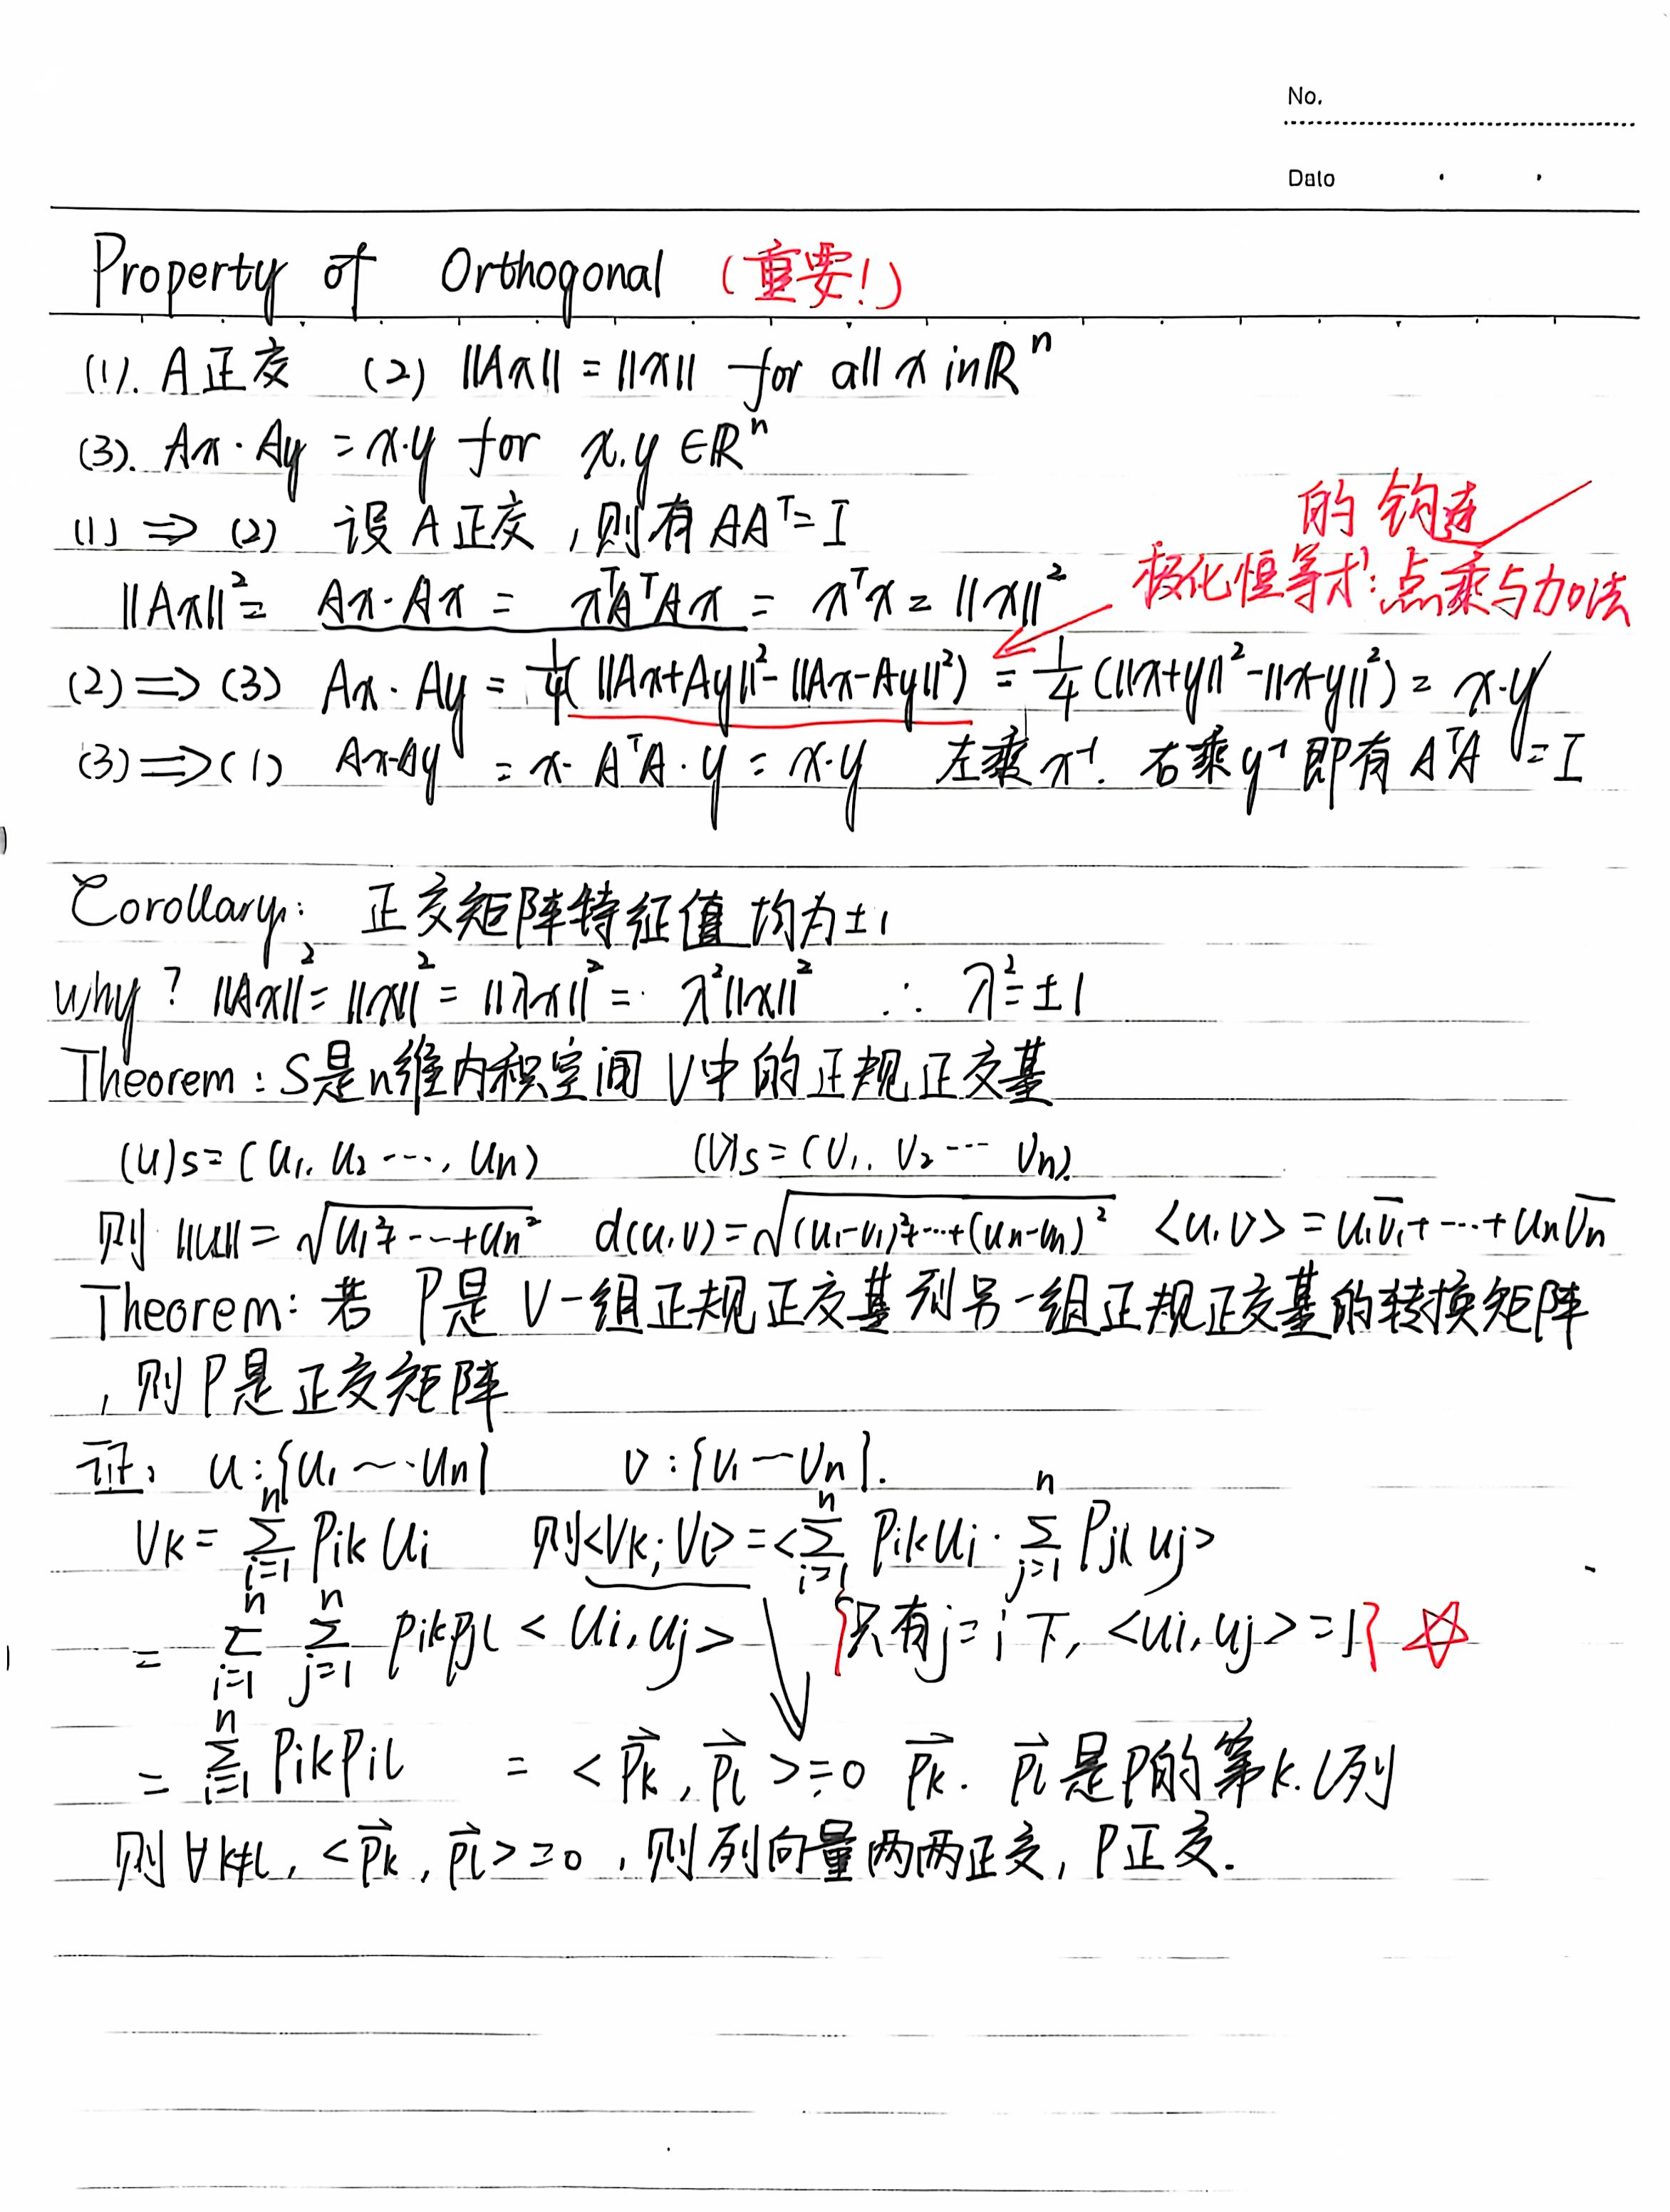 No.
Date
Property of Orthogonal (重要!)
(1). A正交 (2) ||Ax|| = ||x|| for all x in ℝⁿ
(3). Ax · Ay = x·y for x.y ∈ℝⁿ
(1) ⇒ (2) 设 A 正交,则有 AAᵀ= I
的 钩连
极化恒等式:点乘与加法
||Ax||² = Ax·Ax = xᵀAᵀAx = xᵀx = ||x||²
(2) ⇒ (3) Ax · Ay = 1/4( ||Ax+Ay||² - ||Ax-Ay||²) = 1/4 (||x+y||² - ||x-y||²) = x·y
(3) ⇒ (1) Ax·Ay = x· AᵀA · y = x·y 左乘 x⁻¹. 右乘 y⁻¹ 即有 AᵀA = I
Corollary: 正交矩阵特征值均为±1
why? ||Ax||² = ||x||² = ||λx||² = λ²||x||² ∴ λ²=±1
Theorem: S是n维内积空间 V中的正规正交基
(u)s = (u₁, u₂ ···, un) (V)s = (V₁, V₂ ··· Vn)
则 ||u|| = √(u₁²+···+un²) d(u,v) = √((u₁-v₁)²+···+(un-vn)²) <u,v> = u₁v̄₁+···+unv̄n
Theorem: 若 P是 V一组正规正交基到另一组正规正交基的转换矩阵
,则P是正交矩阵
证: u:{u₁ ~ un} v:{v₁ — vn}.
Vk = ∑ᵢ₌₁ⁿ Pik Ui 则<Vk, Vl> = <∑ᵢ₌₁ⁿ Pik Ui · ∑ⱼ₌₁ⁿ Pjl uj>
= ∑ᵢ₌₁ⁿ ∑ⱼ₌₁ⁿ Pik Pjl < Ui, Uj > {只有j= i 下, <ui, uj> =1} ☆
= ∑ᵢ₌₁ⁿ Pik Pil = < p⃗k , p⃗l > = 0 p⃗k. p⃗l 是P的第k. l列
则 ∀k≠l, < p⃗k , p⃗l > = 0 ,则列向量两两正交, P正交.